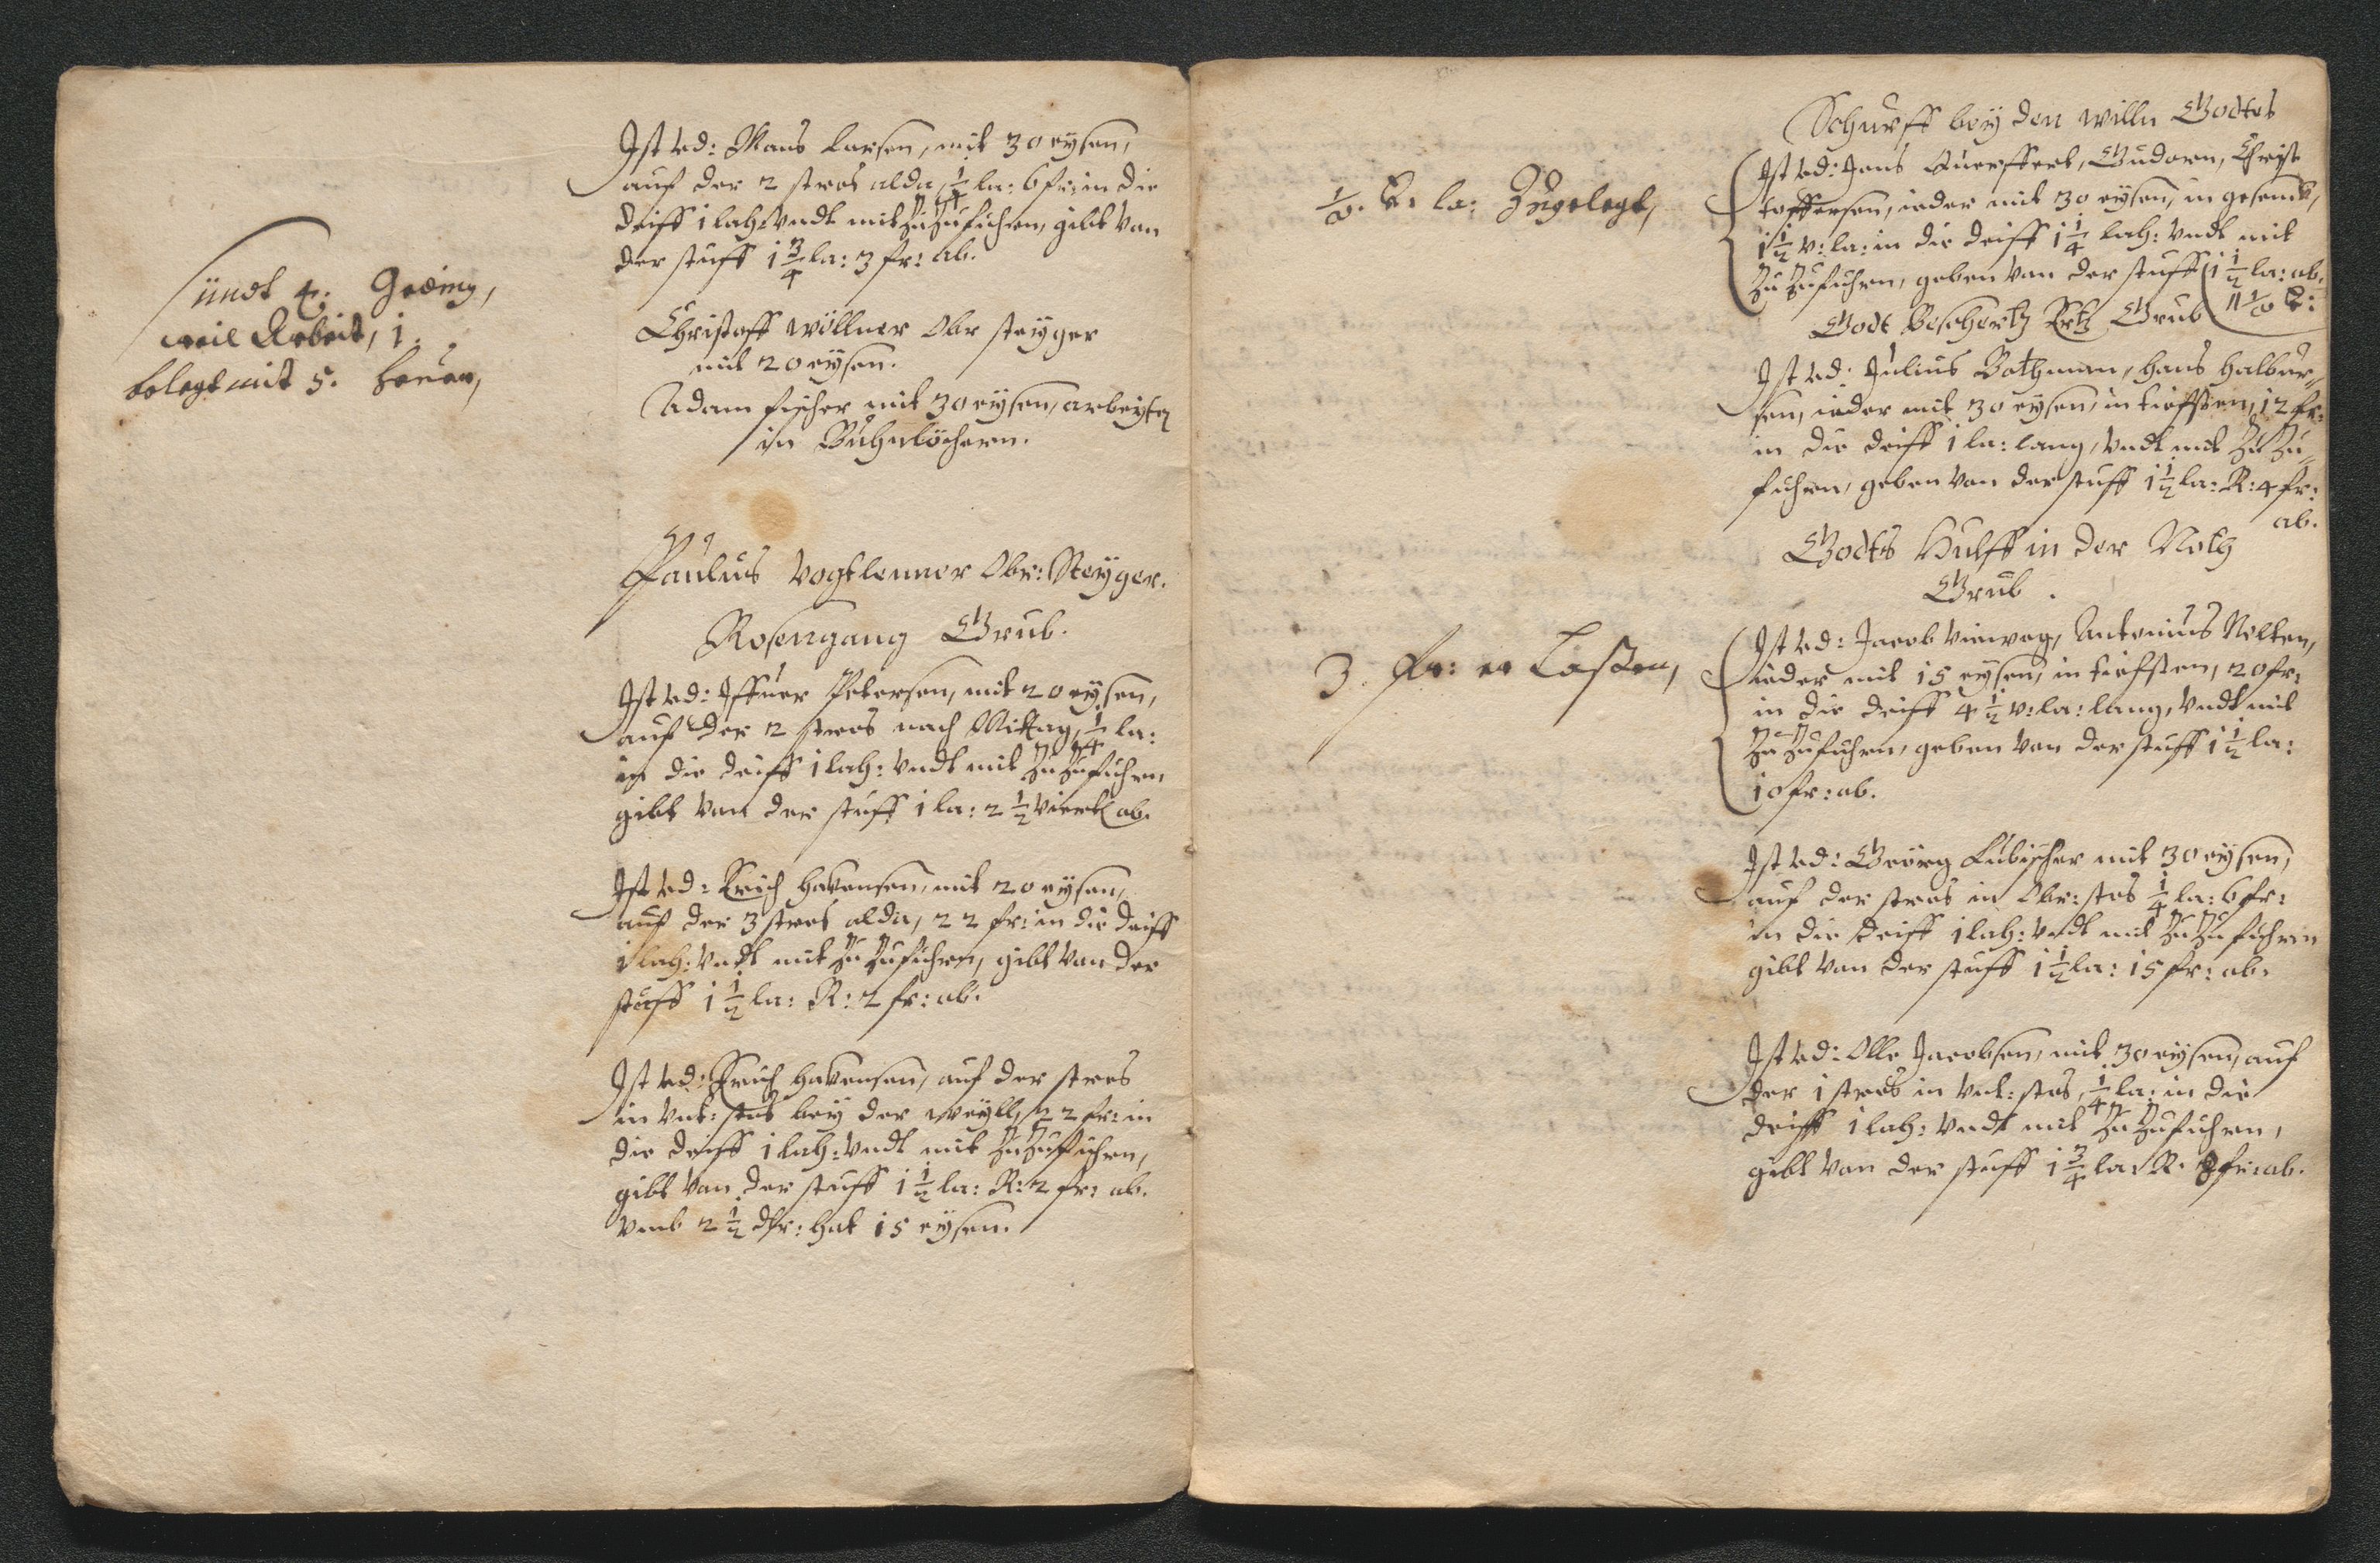 sündt 4. Geding,
weil Arbeit, 1.
belegt mit 5. heuer,
Ist vd: Mans Larsen, mit 30 eysen,
auf der 2 stros alda, 1/4 la: 6 fr: in die
deiff 1 lah: vndt mit Zu Zufuhren, gibt van
der stuff 1 3/4 la: 3 fr: ab.
Christoff Wöllner Obr steyger
mit 20 eysen.
Adam fischer mit 30 eysen, arbeyten
in Buhnlöchern.
Paulus Vogtlenner Obr: Steyger.
Rosengang Grub.
Ist vd: Iffuer Petersen, mit 20 eysen,
auf der 2 stros nach Mittag, 1/4 la:
in die deiff 1 lah: vndt mit Zu Zufuhren,
gibt van der stuff 1 la: 2 1/2 Viertl ab.
Ist vd: Erich Havensen, mit 20 eysen,
auf der 3 stros alda, 22 fr: in die deiff
1 lah: vndt mit Zu Zufuhren, gibt van der
stuff 1 1/2 la: R: 2 fr: ab.
Ist vd: Erich Havensen, auf der stros
in Vnt: stos bey der weyll, 22 fr: in
die deiff 1 lah: vndt mit Zu Zufuhren,
gibt van der stuff 1 1/2 la: R: 2 fr: ab.
Vmb 2 1/2 dhr: hat 15 eysen.
la: Zugelegt,
3. fr: er Laßen,
Schurff bey den willn Godtes
Ist vd: Jens Querffert, Gudorn, Christ
toffersen, ieder mit 30 eysen, in gesenck,
1 1/2 v: la: in die deiff 1 1/4 lah: vndt mit
Zu Zufuhren, geben van der stuff 1 1/2 la: ab.
Godt Beschertz Ertz Grub
Ist vd: Julius Bothman, hans halbur¬
sen, ieder mit 30 eysen, in tieffsten, 12 fr:
in die deiff 1 la: lang, vndt mit Zu Zu¬
fuhren, geben van der stuff 1 1/2 la: R: 4 fr:
ab.
Godts Hulff in der Noth
Grub.
Ist vd: Jacob Vieweg, Antonius Nolten,
ieder mit 15 eysen, in tiefsten, 20 fr:
in die deiff 4 1/2 v: la: lang, vndt mit
Zu Zufuhren, geben van der stuff 1 1/2 la:
10 fr: ab.
Ist vd: Georg Lubischer mit 30 eysen,
auf der stros in Obr: stos 1/4 la: 6 fr:
in die deiff 1 lah: vndt mit Zu Zufuhren
gibt van der stuff 1 1/2 la: 15 fr: ab.
Ist vd: Olle Jacobsen, mit 30 eysen, auf
der 1 stros in Vnt: stos, 1/4 la: in die
deiff 1 lah: vndt mit Zu Zufuhren,
gibt van der stuff 1 3/4 la: R. fr: ab.